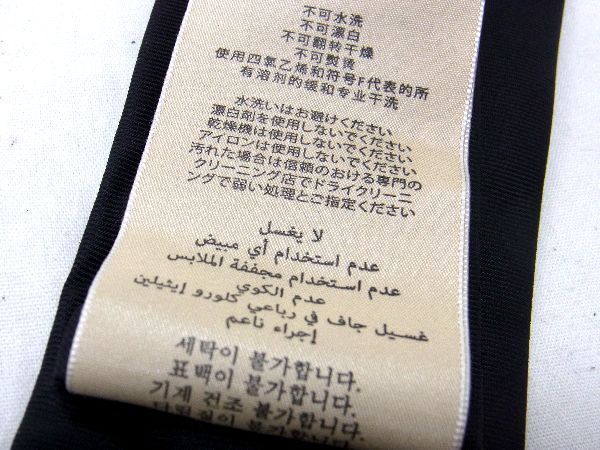 不可水洗
不可漂白
不可翻转干燥
不可熨烫
使用四氯乙烯和符号F代表的所
有溶剂的缓和专业干洗
水洗いはお避けください
漂白剤を使用しないでください
乾燥機は使用しないでください
アイロンは使用しないでください
汚れた場合は信頼のおける専門の
クリーニング店でドライクリーニ
ングで弱い処理とご指定ください
لا يغسل
عدم استخدام أي مبيض
عدم استخدام مجففة الملابس
عدم الكوي
غسيل جاف في رباعي كلورو إيثيلين
إجراء ناعم
세탁이 불가합니다.
표백이 불가합니다.
기계 건조 불가합니다.
불가합니다.